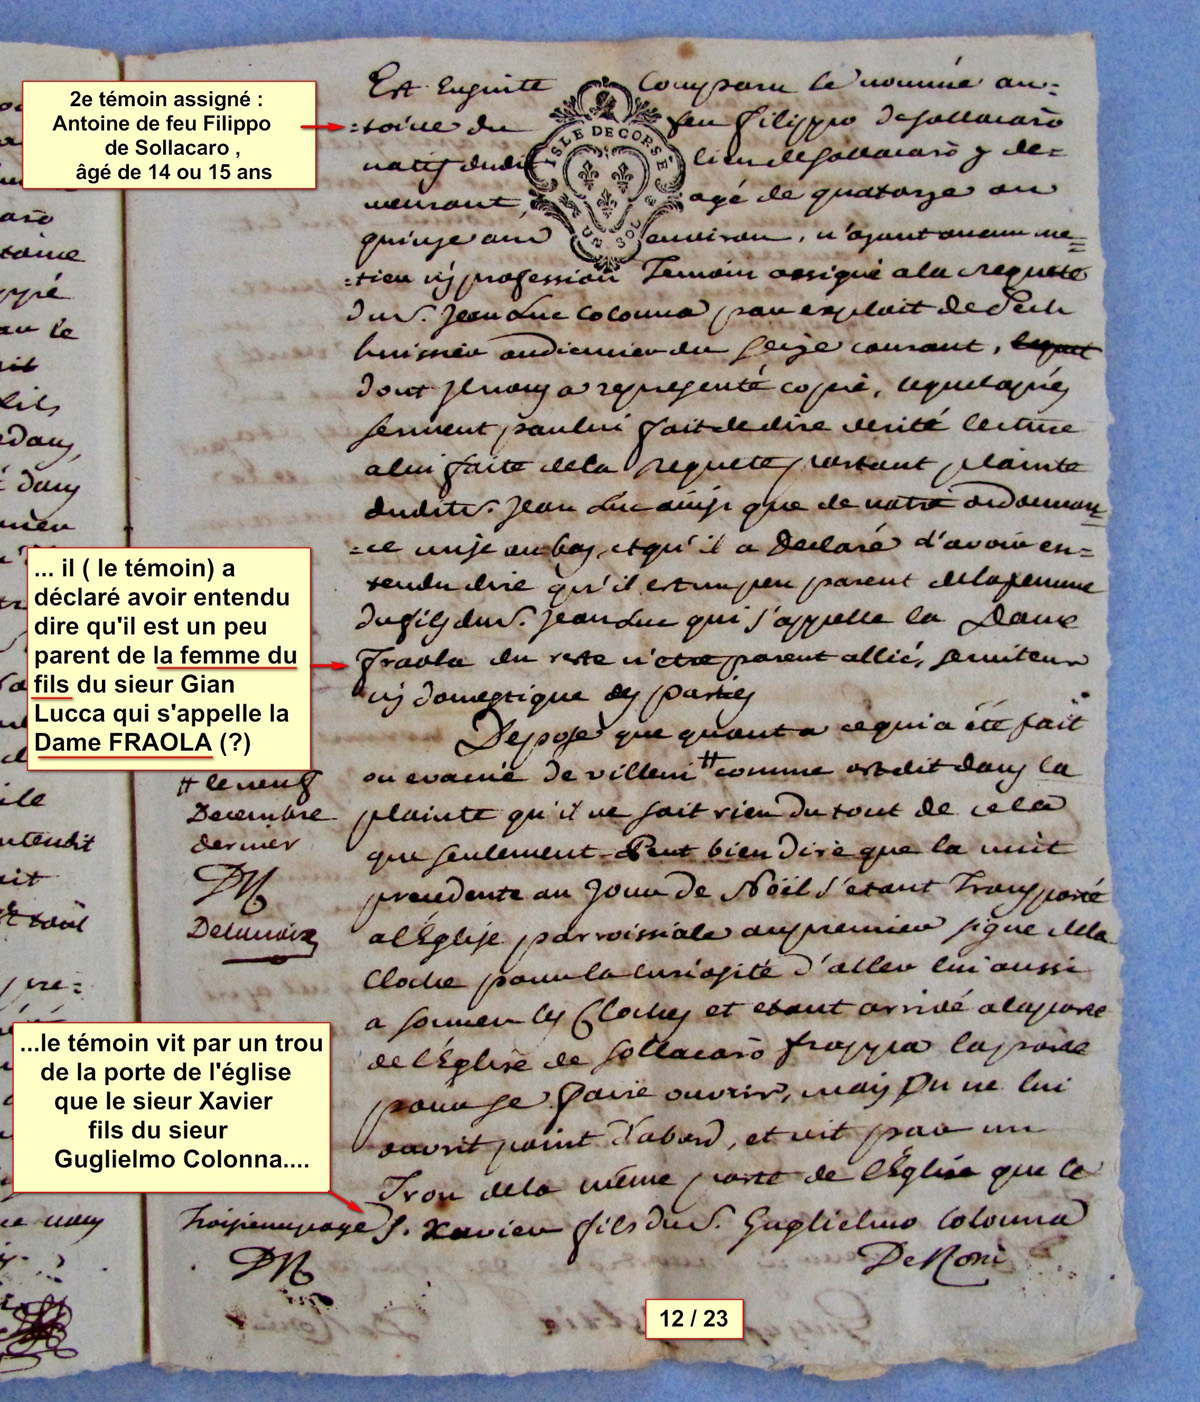 2e témoin assigné :
Antoine de feu Filippo
de Sollacaro ,
âgé de 14 ou 15 ans
... il ( le témoin) a
déclaré avoir entendu
dire qu'il est un peu
parent de la femme du
fils du sieur Gian
Lucca qui s'appelle la
Dame FRAOLA (?)
...le témoin vit par un trou
de la porte de l'église
que le sieur Xavier
fils du sieur
Guglielmo Colonna....
12 / 23
ISLE DE CORSE
UN SOL
Est Ensuite Comparu le nommé an=
=toine du feu filippo de sollacarò
natif dudit lieu de sollacarò y de=
meurant, agé de quatorze ou
quinze ans environ, n'ayant aucun me=
=tier ny profession Temoin assigné a la requete
du S. Jean Luc Colonna par exploit de
huissier audiencier du seize courant,
dont il nous a representé copie, lequel après
serment par lui fait de dire verité lecture
a lui faite de la requete portant plainte
dudit S. Jean Luc ainsi que de notre ordonnan=
=ce mise au bas, et qu'il a Declaré d'avoir en=
tendu dire qu'il est un peu parent de la femme
du fils du S. Jean Luc qui s'appelle la Dame
fraola du reste n'etre parent allié, serviteur
ny domestique des parties
Depose que quant a ce qui a été fait
ou evacué de villeni # comme est dit dans la
plainte qu'il ne sait rien du tout de cela
que seulement Peut bien dire que la nuit
precedente au Jour de Noël s'etant Transporté
a l'Eglise parroissiale au premier signe de la
Cloche pour la curiosité d'aller lui aussi
a sonner les Cloches et etant arrivé a la porte
de l'Eglise de Sollacarò frappa la porte
pour se faire ouvrir, mais on ne lui
ouvrit point d'abord, et vit par un
Trou de la même porte de l'Eglise que le
S. Xavier fils du S. Guglielmo Colonna
# le neuf
Decembre
dernier
DR
Troisieme page
DR
De Roni